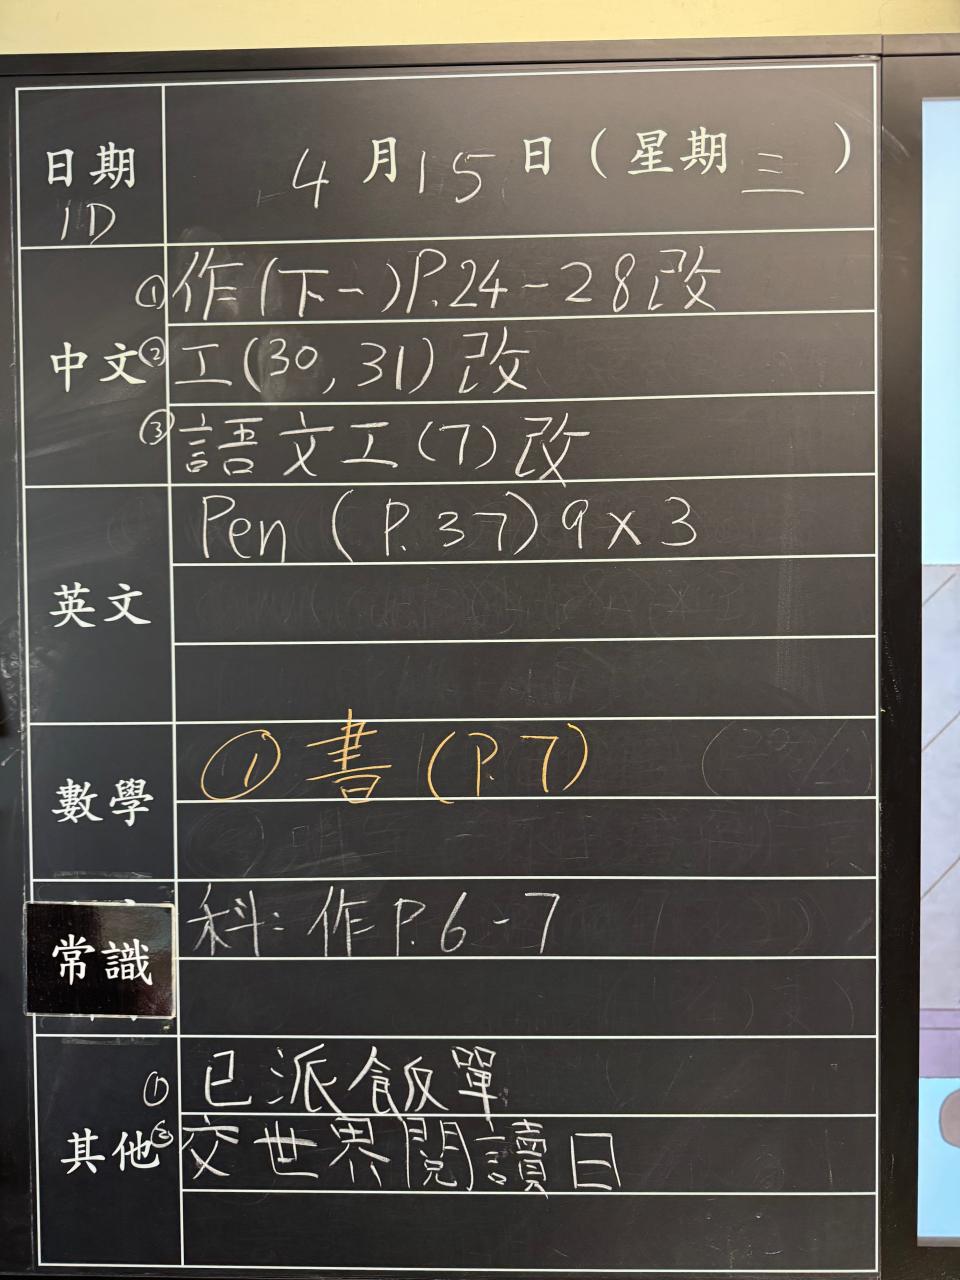 日期 4月15日(星期三)
1D
中文 ①作(下一)P.24-28改
②工(30,31)改
③語文工(7)改
英文 Pen (P.37) 9x3
數學 ①書(P.7)
常識 科:作P.6-7
其他 ①已派飯單
②交世界閱讀日